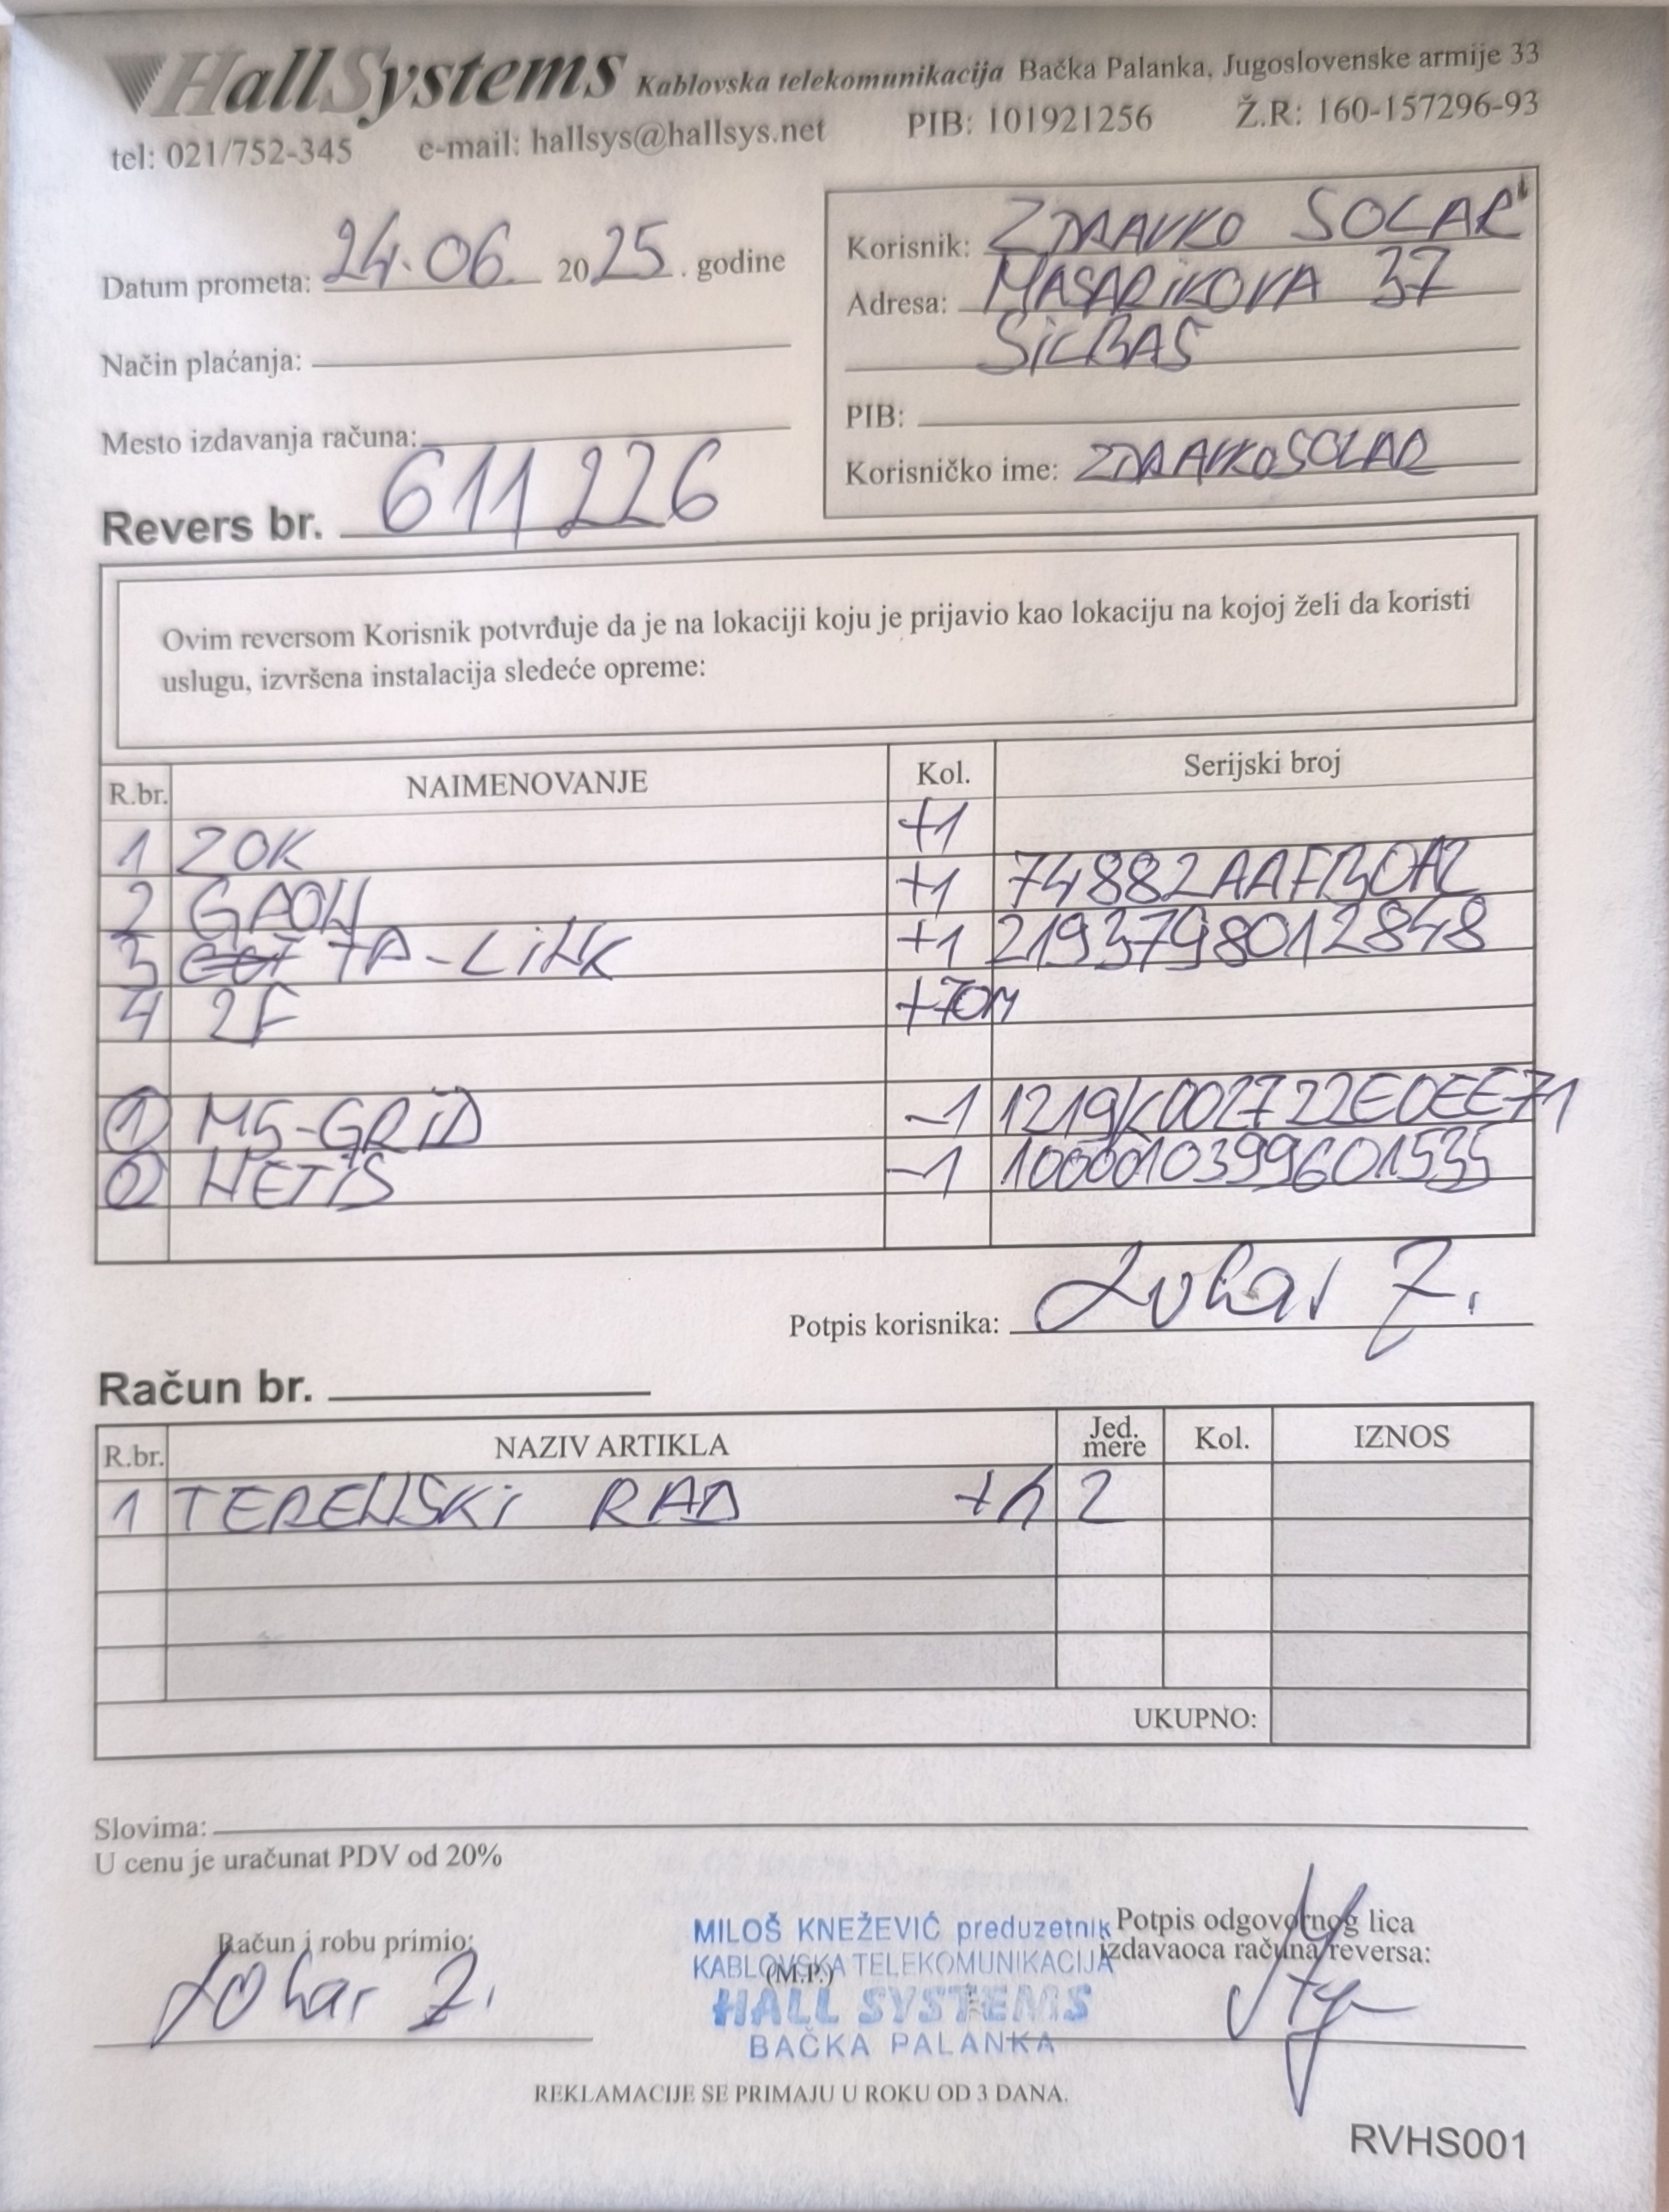 HallSystems Kablovska telekomunikacija Bačka Palanka, Jugoslovenske armije 33
tel: 021/752-345 e-mail: hallsys@hallsys.net PIB: 101921256 Ž.R: 160-157296-93
Datum prometa: 24.06. 2025. godine
Način plaćanja:
Mesto izdavanja računa:
Revers br. 611226
Korisnik: ZDRAVKO SOLAR
Adresa: MASARIKOVA 37
SILBAŠ
PIB:
Korisničko ime: ZDRAVKOSOLAR
Ovim reversom Korisnik potvrđuje da je na lokaciji koju je prijavio kao lokaciju na kojoj želi da koristi
uslugu, izvršena instalacija sledeće opreme:
R.br. NAIMENOVANJE Kol. Serijski broj
1 ZOK +1
2 GPON +1
3 TP-LINK +1 2193798012848
4 2F +70M
1 M5-GRID -1
2 NETIS -1
Potpis korisnika:
Račun br.
R.br. NAZIV ARTIKLA Jed. mere Kol. IZNOS
1 TERENSKI RAD +h 2
UKUPNO:
Slovima:
U cenu je uračunat PDV od 20%
Račun i robu primio:
MILOŠ KNEŽEVIĆ preduzetnik
KABLOVSKA TELEKOMUNIKACIJA
(M.P.)
HALL SYSTEMS
BAČKA PALANKA
Potpis odgovornog lica
izdavaoca računa/reversa:
REKLAMACIJE SE PRIMAJU U ROKU OD 3 DANA.
RVHS001